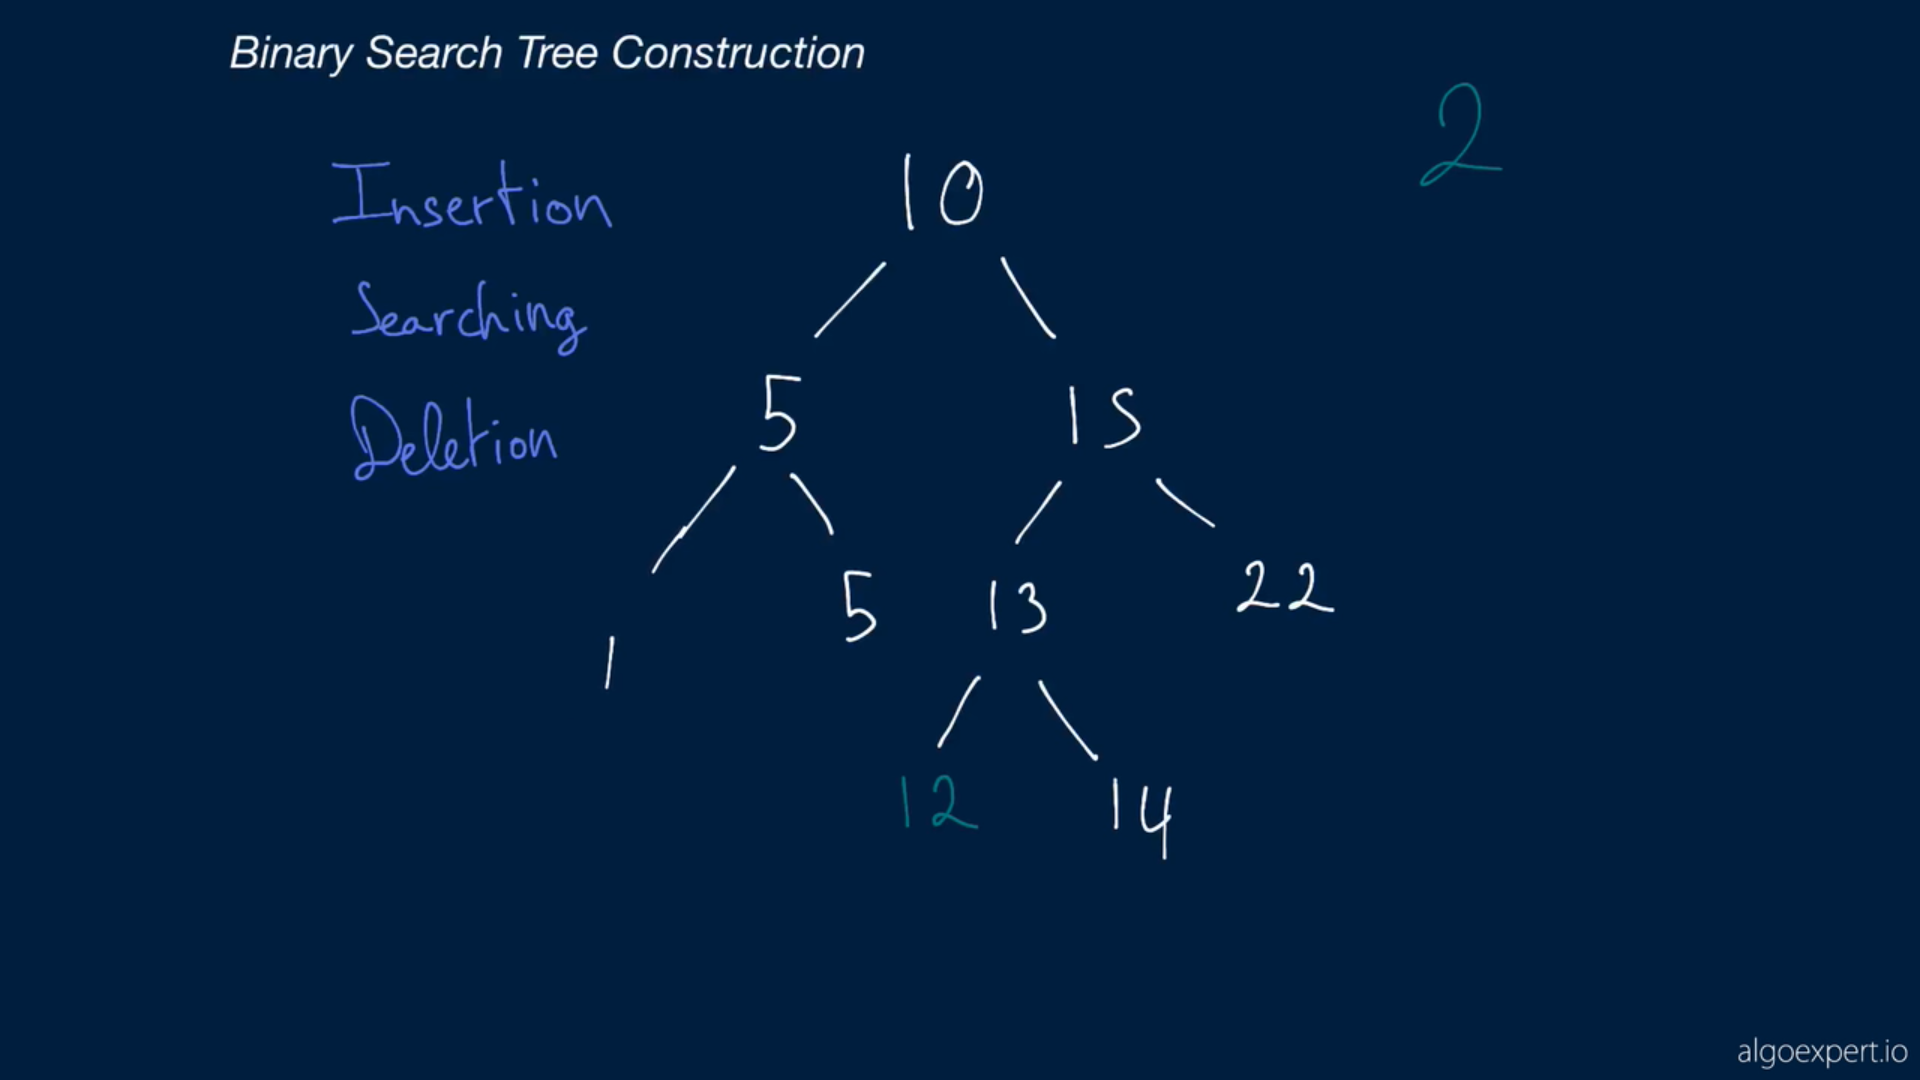 Binary Search Tree Construction
2
Insertion
10
Searching
5 15
Deletion
5 13 22
1
12 14
algoexpert.io